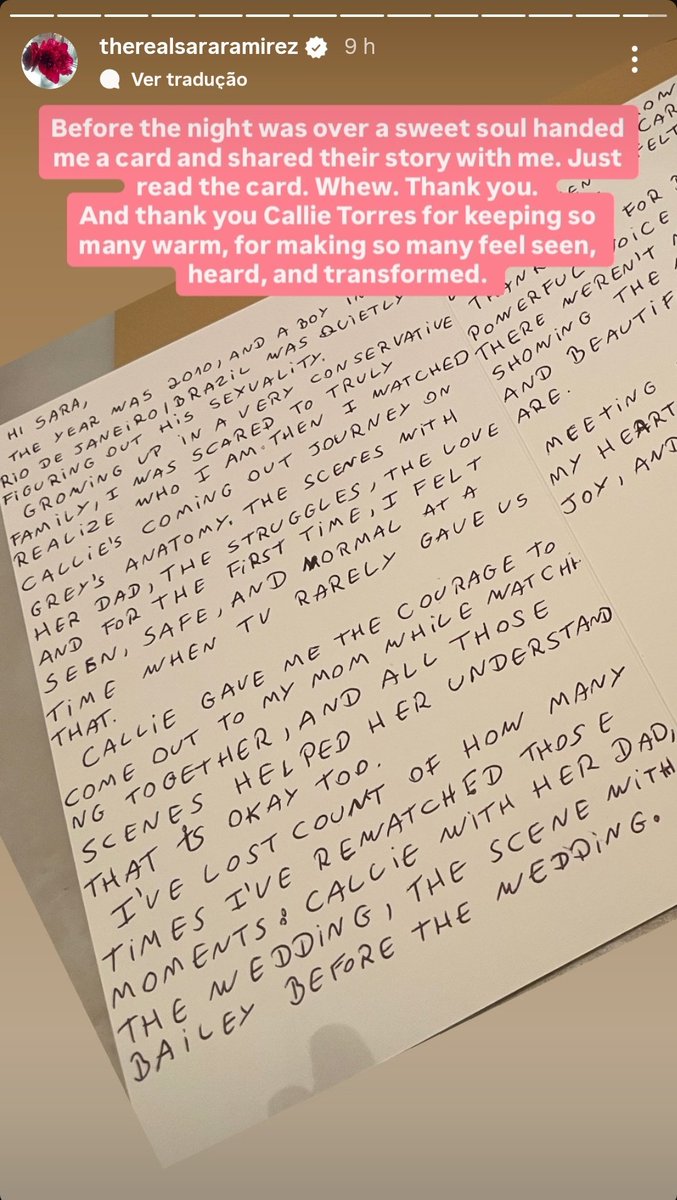 therealsararamirez 9 h
Ver tradução
Before the night was over a sweet soul handed
me a card and shared their story with me. Just
read the card. Whew. Thank you.
And thank you Callie Torres for keeping so
many warm, for making so many feel seen,
heard, and transformed.
HI SARA,
THE YEAR WAS 2010, AND A BOY IN
RIO DE JANEIRO/BRAZIL WAS QUIETLY
FIGURING OUT HIS SEXUALITY.
GROWING UP IN A VERY CONSERVATIVE
FAMILY, I WAS SCARED TO TRULY
REALIZE WHO I AM. THEN I WATCHED
CALLIE'S COMING OUT JOURNEY ON
GREY'S ANATOMY. THE SCENES WITH
HER DAD, THE STRUGGLES, THE LOVE
AND FOR THE FIRST TIME, I FELT
SEEN, SAFE, AND NORMAL AT A
TIME WHEN TV RARELY GAVE US
THAT.
CALLIE GAVE ME THE COURAGE TO
COME OUT TO MY MOM WHILE WATCHI
NG TOGETHER, AND ALL THOSE
SCENES HELPED HER UNDERSTAND
THAT IS OKAY TOO.
I'VE LOST COUNT OF HOW MANY
TIMES I'VE REWATCHED THOSE
MOMENTS: CALLIE WITH HER DAD,
THE WEDDING, THE SCENE WITH
BAILEY BEFORE THE WEDDING.
FELT
FOR
POWERFUL VOICE
THERE WEREN'T
SHOWING THE
AND BEAUTIF
ARE.
MEETING
MY HEART
JOY, AND